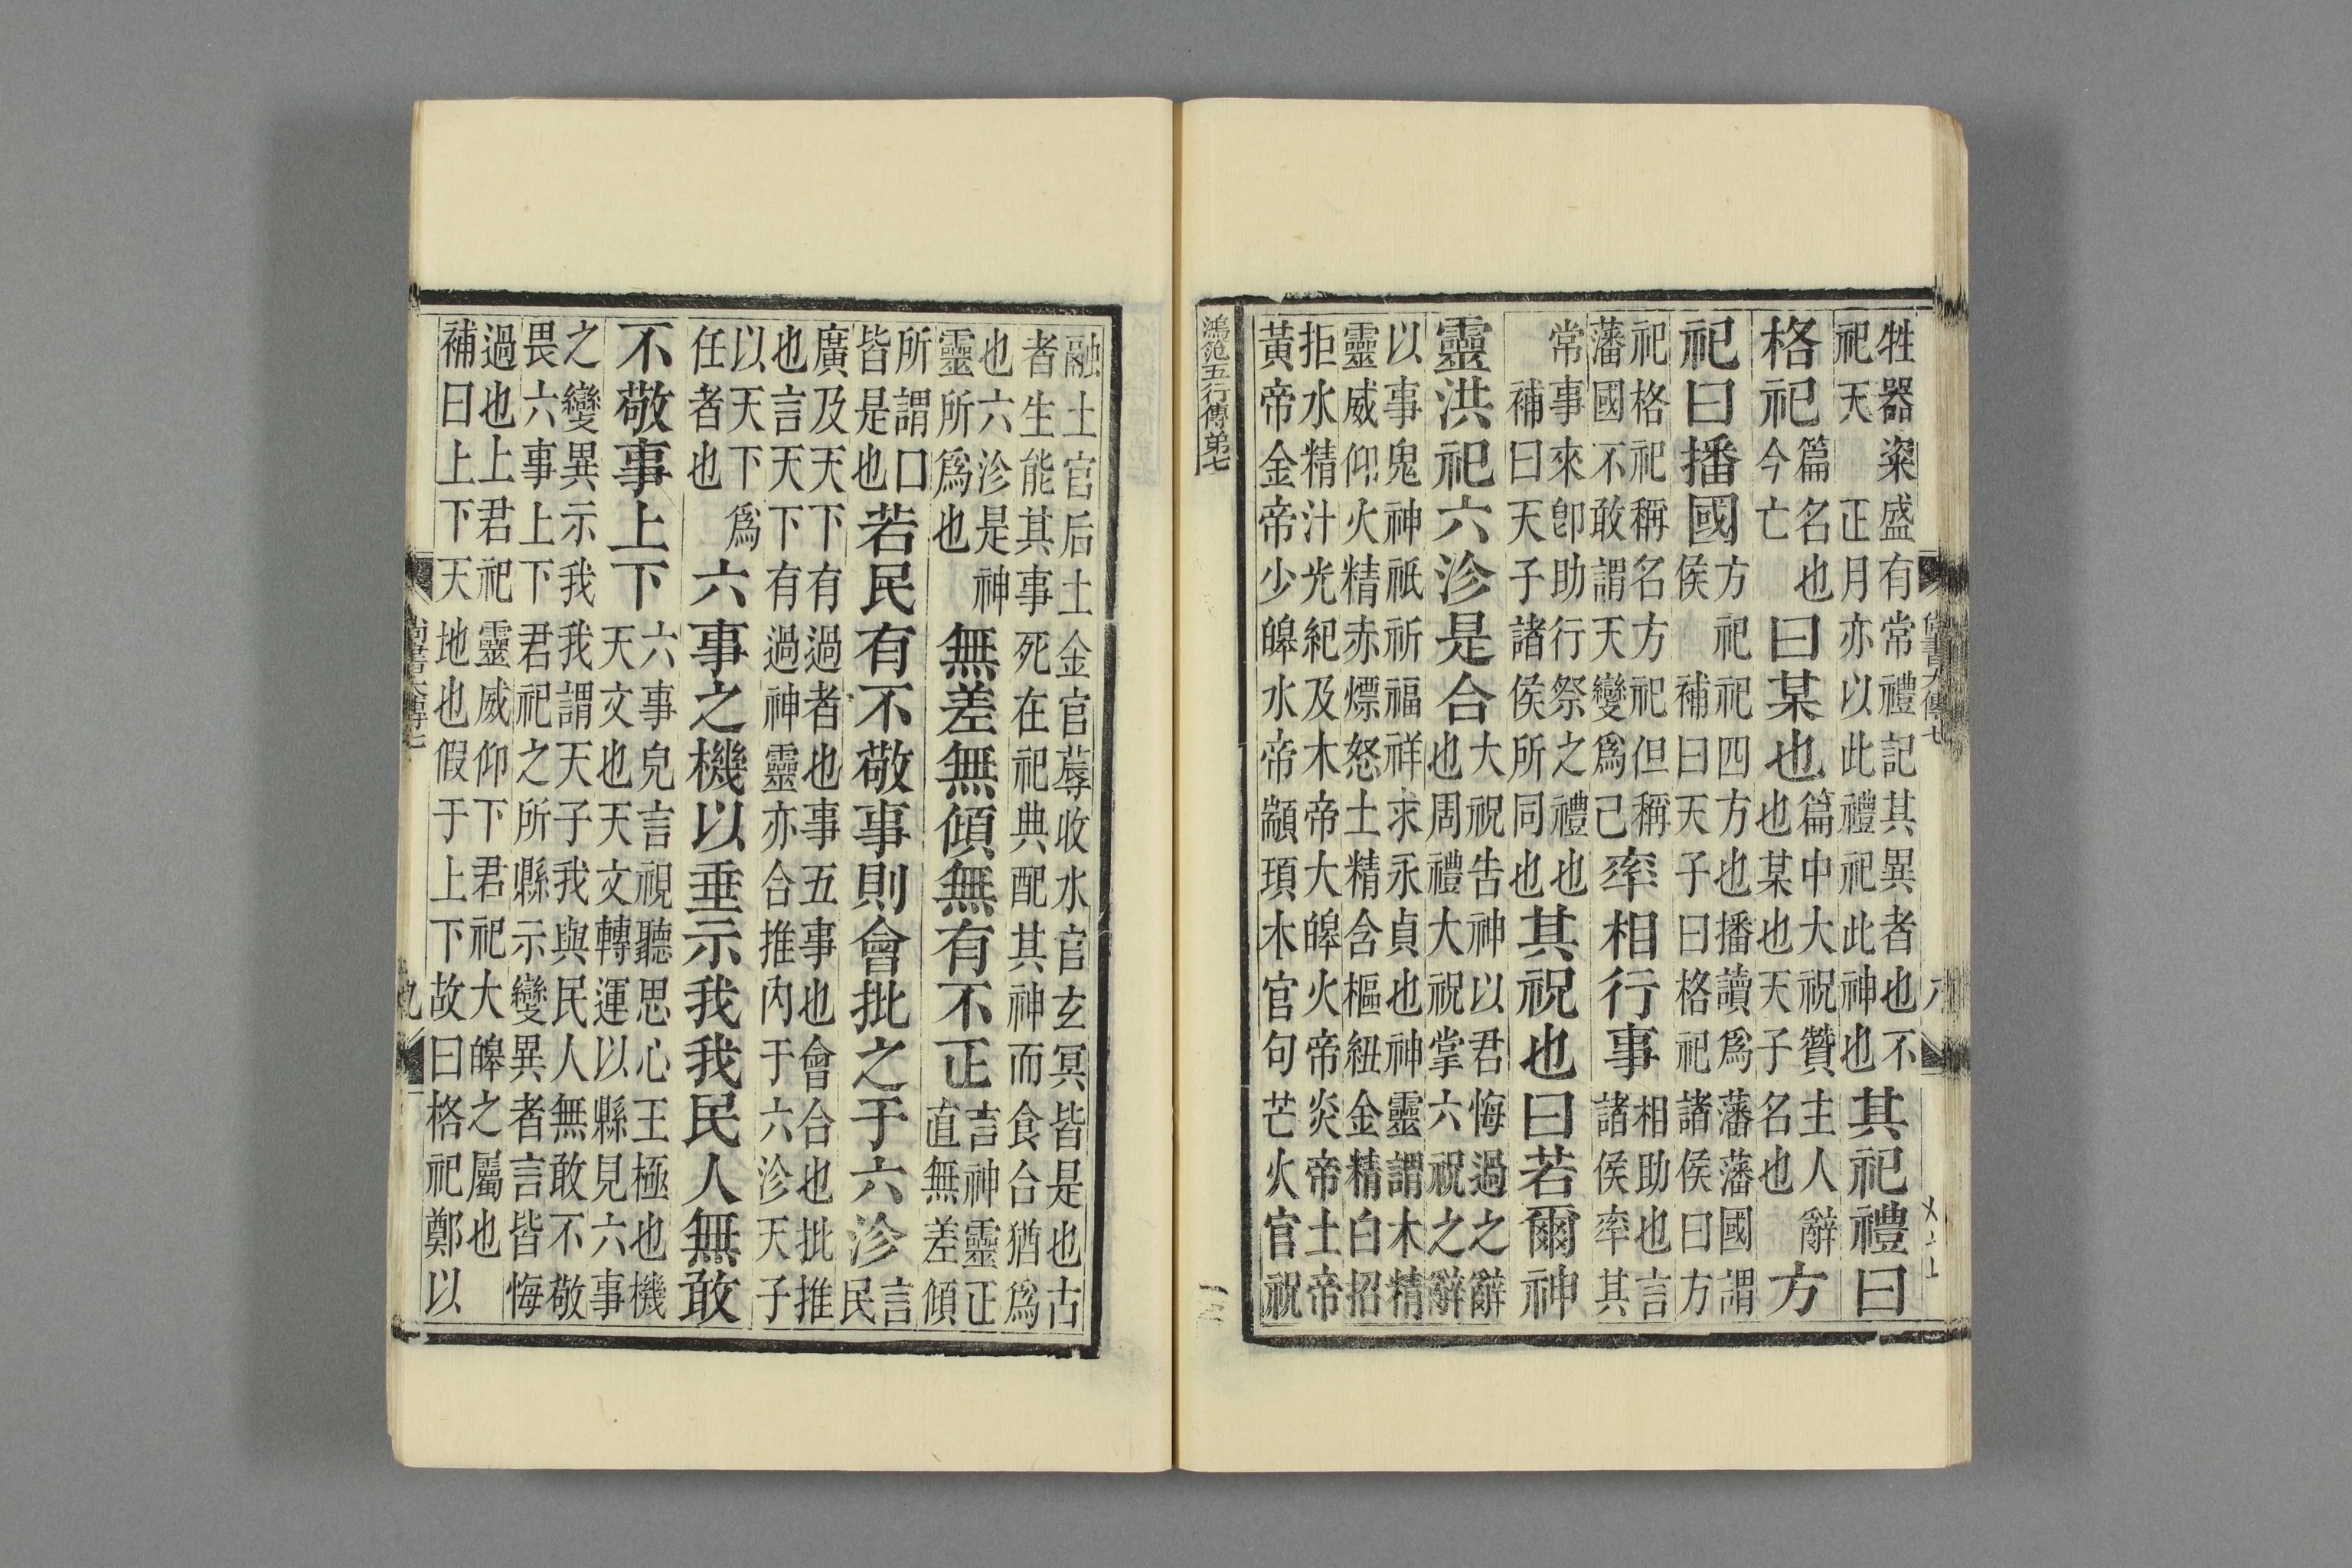 牲器粢盛有常禮記其異者也不祀天正月亦以此禮祀此神也其祀禮曰
格祀篇名也今亡曰某也篇中大祝贊主人辭也某也天子名也方
祀曰播國方祀祀四方也播讀爲藩藩國謂侯補曰天子曰格祀諸侯曰方
祀格祀稱名方祀但稱藩國不敢謂天變爲己率相行事相助也言諸侯率其
常事來卽助行祭之禮也補曰天子諸侯所同也其祝也曰若爾神
靈洪祀六沴是合大祝告神以君悔過之辭也周禮大祝掌六祝之辭
以事鬼神祇祈福祥求永貞也神靈謂木精靈威仰火精赤熛怒土精含樞紐金精白招
拒水精汁光紀及木帝大皞火帝炎帝土帝黃帝金帝少皞水帝顓頊木官句芒火官祝
鴻笵五行傳弟七
融土官后土金官蓐收水官玄冥皆是也古者生能其事死在祀典配其神而食合猶爲
也六沴是神靈所爲也無差無傾無有不正言神靈正直無差傾
所謂口皆是也若民有不敬事則會批之于六沴言民
廣及天下有過者也事五事也會合也批推也言天下有過神靈亦合推內于六沴天子
以天下爲任者也六事之機以垂示我我民人無敢
不敬事上下六事皃言視聽思心王極也機天文也天文轉運以縣見六事
之變異示我我謂天子我與民人無敢不敬畏六事上下君祀之所縣示變異者言皆悔
過也上君祀靈威仰下君祀大皞之屬也補曰上下天地也假于上下故曰格祀鄭以
九